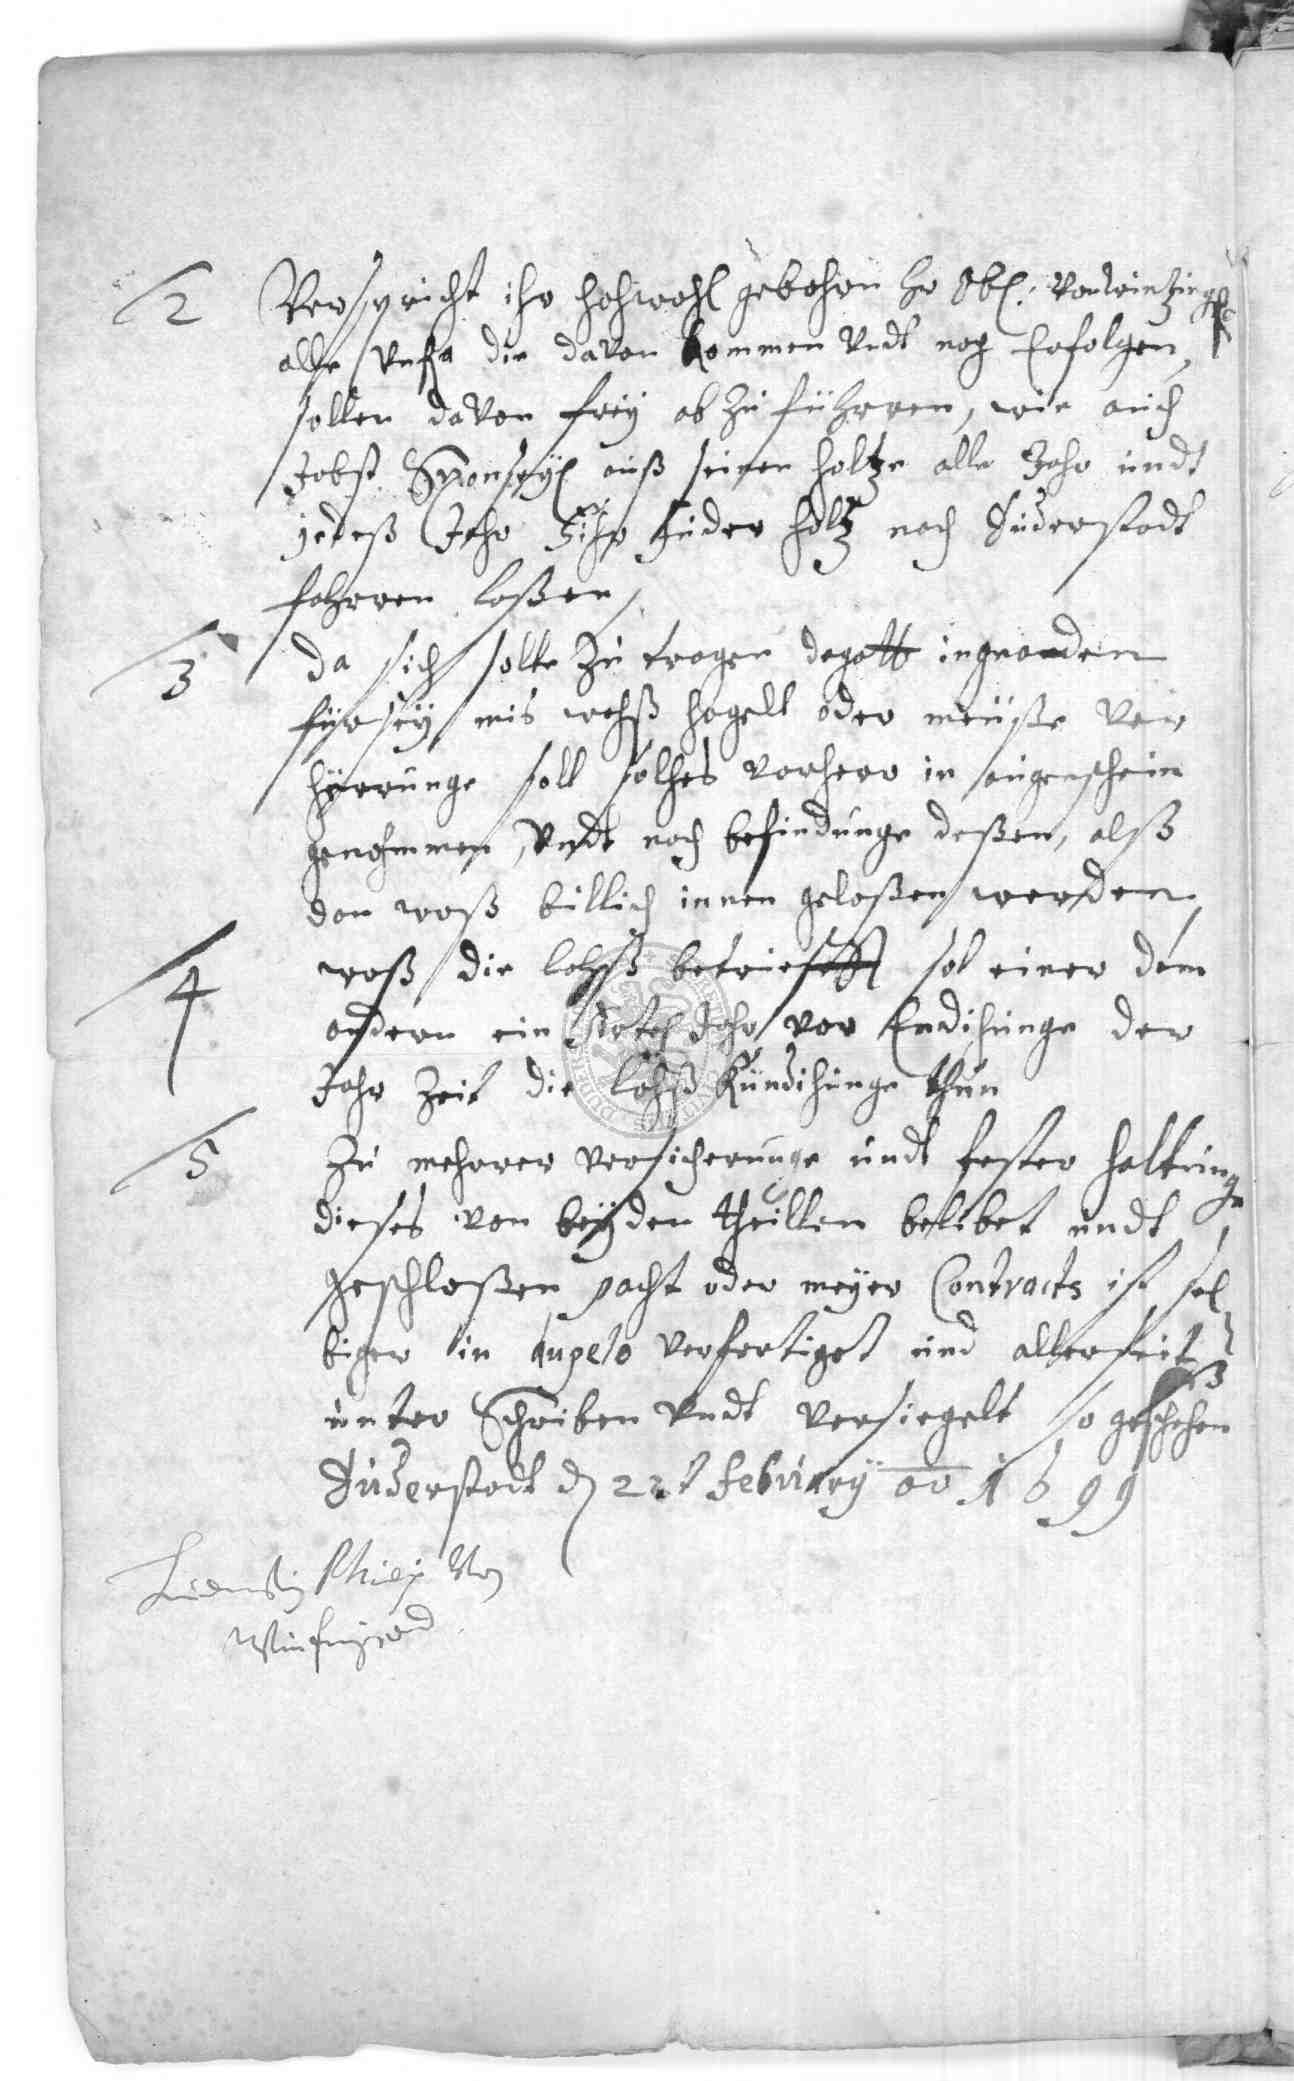 2 Verspricht ihr hochwohl gebohrn hr Obl: von wintzinge
alle die davon kommen undt noch Erfolgen,
sollen davon frey ab zu führren, wie auch
Jobst auß seinen holtze alle Jahr undt
jedeß Jahr fuder holtz nach Duderstadt
fahrren laßen,
3 da sich solte zu tragen dagott in gnaden
fur sey mis wachß hagell oder meuße ver
herunge soll solches vorhero in augenschein
genohmmen, Undt nach befindunge deßen, alß
dan waß billich innen gelaßen werden,
4 waß die lohß betrieft sol einer dem
andern ein Jahr vor Endichunge der
Jahr zeit die lohß kündichunge thun
5 Zu mehrer versicherunge undt fester haltunge
dieses von beyden theillen belibet undt
geschloßen pacht oder meyer Contracts ist sel
biger in duplo verfertiget und allerseitß
unter Schriben Undt versiegelt so geschehen
Duderstadt d 22t february ao 1699
Ludewig Philip Von
Wintzingerod